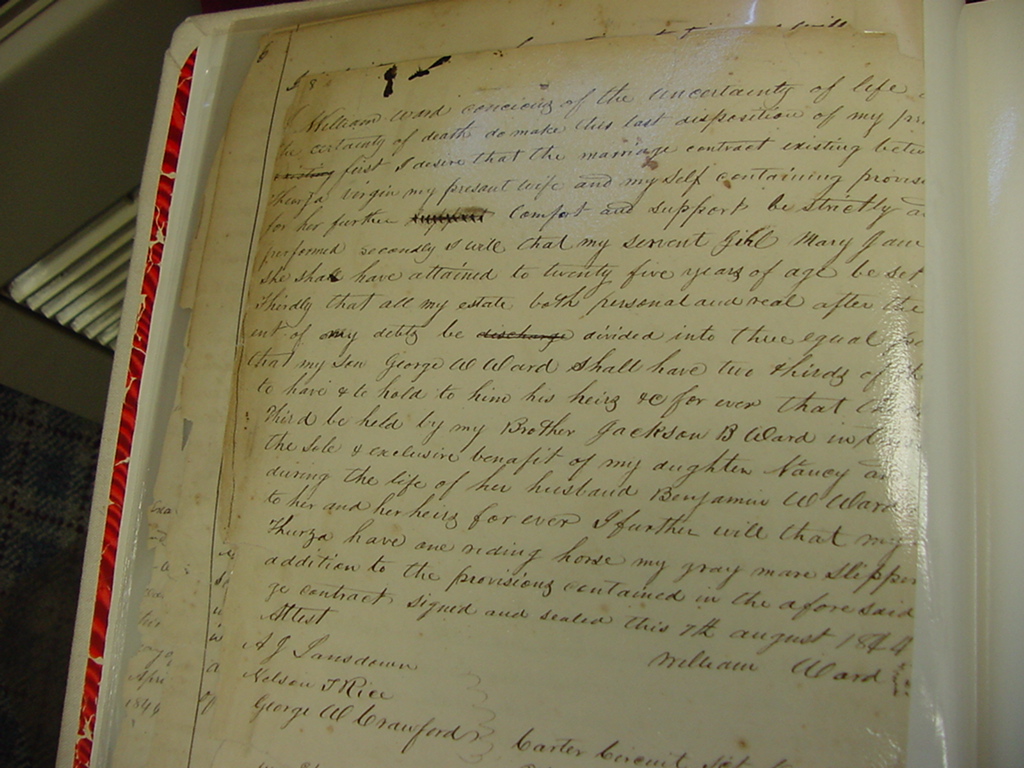 I William Ward concious of the uncertainty of life
the certainty of death do make this last disposition of my
existing first I desire that the marriage contract existing
Thurza Virgin my present wife and my self containing
for her further support Comfort and support be strictly
performed secondly I will that my servent Girl Mary Jane
she shall have attained to twenty five years of age be set
Thirdly that all my estate both personal and real after the
ent of my debts be discharge divided into three equal
that my son George W Ward shall have two thirds of
to have & to hold to him his heirs &c for ever that
third be held by my Brother Jackson B Ward in
the sole & exclusive benafit of my daughter Nancy
during the life of her husband Benjamin W Ward
to her and her heirs for ever I further will that my
Thurza have one riding horse my gray mare Slipper
addition to the provisions contained in the afore said
ge contract signed and sealed this 7th august 1844
Attest
William Ward
A J Lansdown
Nelson T Rice
George W Crawford
Carter Circuit
Apri
1844